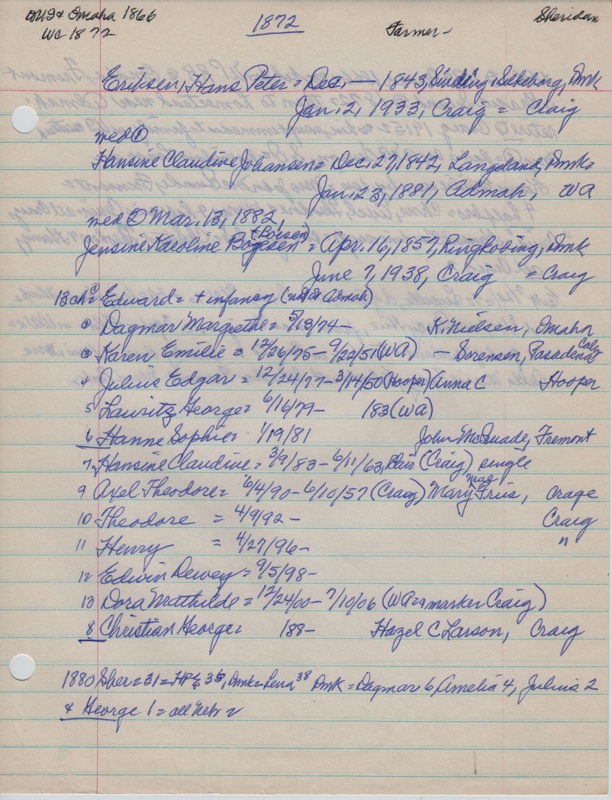 Omaha 1866 1872 Sheridan
WC 1872 Farmer -
Eriksen, Hans Peter = Dec. — 1843, Sinding, Silkeborg, Dmk
Jan. 2, 1933, Craig = Craig
med ①
Hansine Claudine Johansen = Dec. 27, 1842, Langeland, Dmk =
Jan. 23, 1881, Admah, WA
med ② Mar. 13, 1882,
(Boisen)
Jensine Karoline Bogesen = Apr. 16, 1857, Ringkobing, Dmk
June 7, 1938, Craig = Craig
13 ch = Edward = + infancy Admah)
Dagmar Margethe = 5/13/74 - K. Nielsen, Omaha
Karen Emilie = 12/26/75 - 9/22/51 (WA) - Sorensen, Pasadena Calif
4 Julius Edgar = 12/24/77 - 3/14/50 (Hooper) Anna C Hooper
5 Lauritz George = 6/16/79 - 183 (WA)
6 Hanne Sophie = 1/19/81 John McQuade, Fremont
7 Hansine Claudine = 3/9/83 - 6/11/63, Blair (Craig) single
9 Axel Theodore = 6/4/90 - 6/10/57 (Craig) Mary Mag Friis, Craig
10 Theodore = 4/9/92 - Craig
11 Henry = 4/27/96 - "
12 Edwin Dewey = 9/5/98 -
13 Dora Mathilde = 12/24/00 - 7/10/06 (WA = marker Craig)
8 Christian George = 188- Hazel C Larson, Craig
1880 Sher = 31 = HP E 36, Dmk = Lena 38 Dmk = Dagmar 6, Amelia 4, Julius 2
& George 1 = all Nebr